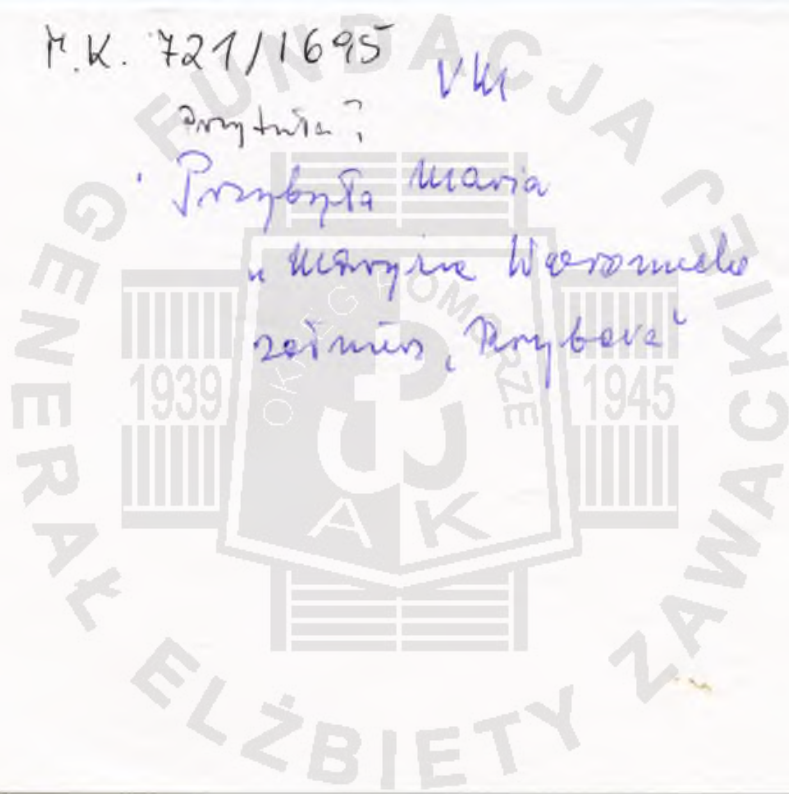 M.K. 721/1695
VM
Przytuła?
Przybyła Maria
„Maryna
żołnierz,
FUNDACJA GENERAŁ ELŻBIETY ZAWACKIEJ
OKRĘG POMORZE
1939
1945
AK